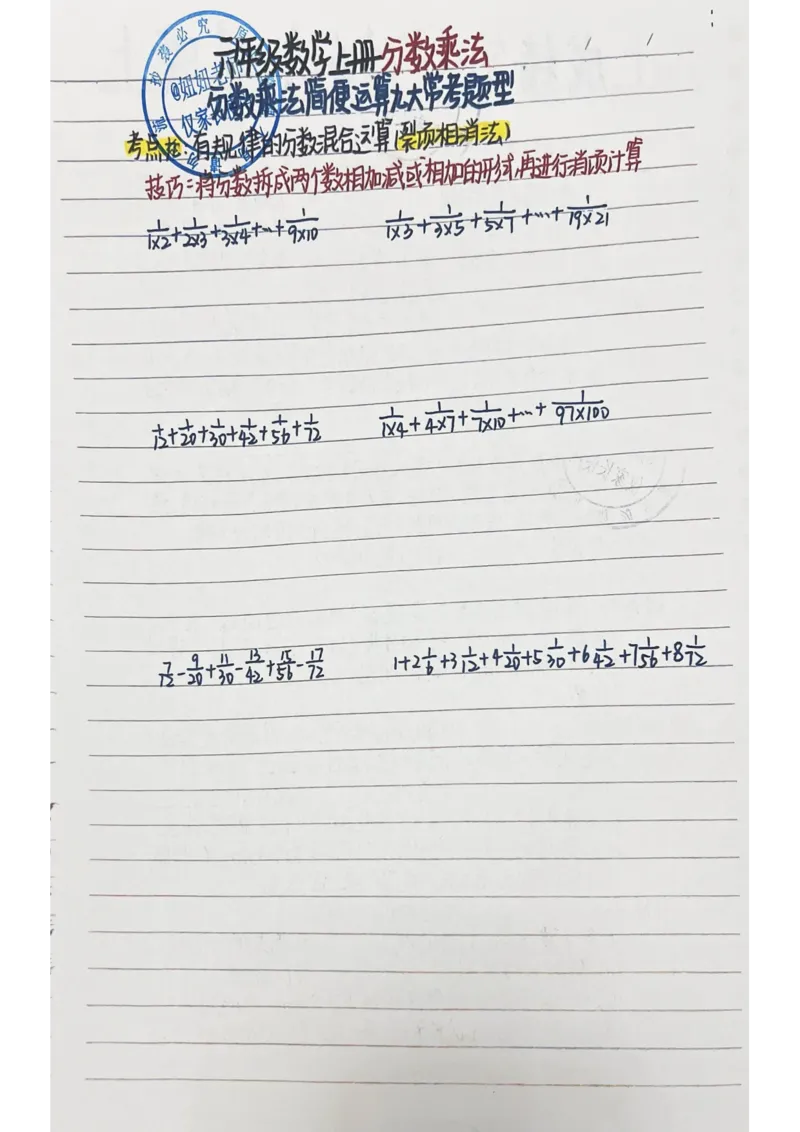 六年级数学上册-分数乘法
分数乘法简便运算九大常考题型
考点九:有规律的分数混合运算(裂项相消法)
技巧:将分数拆成两个数相加减或相加的形式,再进行消项计算
1/1×2+1/2×3+1/3×4+…+1/9×10
1/1×3+1/3×5+1/5×7+…+1/19×21
1/12+1/20+1/30+1/42+1/56+1/72
1/1×4+1/4×7+1/7×10+…+1/97×100
7/12-9/20+11/30-13/42+15/56-17/72
1+2 1/6+3 1/12+4 1/20+5 1/30+6 1/42+7 1/56+8 1/72